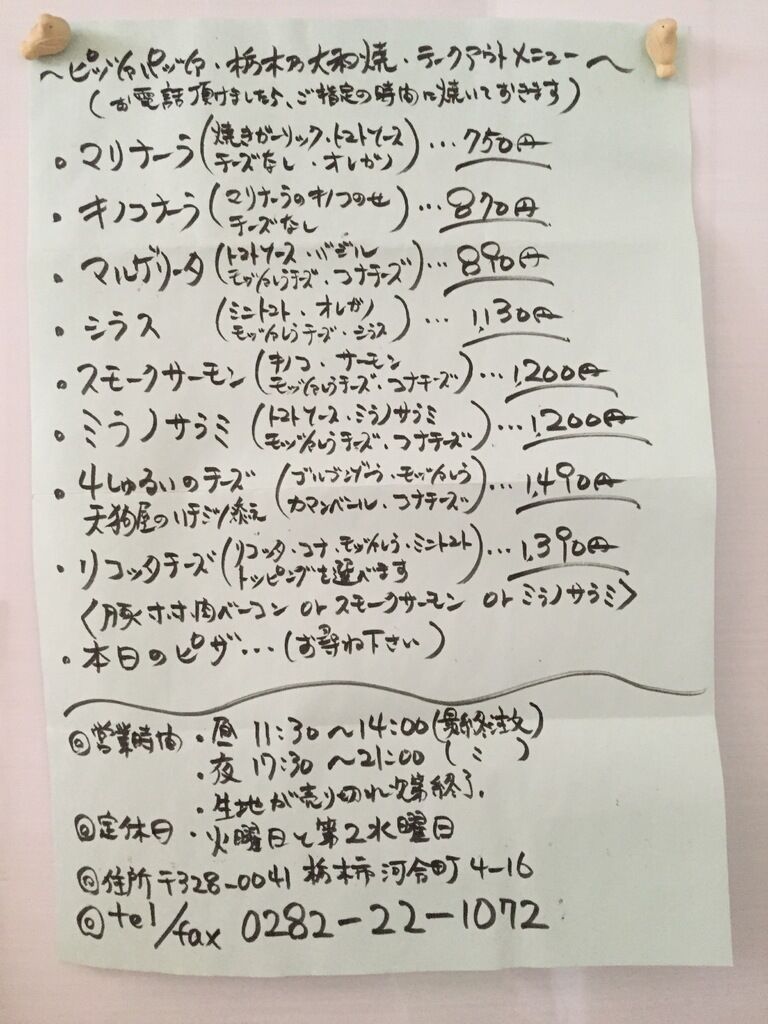 〜ピッツァパッツァ・栃木の大和焼・テークアウトメニュー〜
(お電話頂けましたら、ご指定の時間に焼いておきます)
・マリナーラ(焼きガーリック・トマトソース
チーズなし・オレガノ)…750円
・キノコナーラ(マリナーラのキノコのせ
チーズなし)…870円
・マルゲリータ(トマトソース・バジル
モッツァレラチーズ・コナチーズ)…890円
・シラス(ミニトマト・オレガノ
モッツァレラチーズ・シラス)…1,130円
・スモークサーモン(キノコ・サーモン
モッツァレラチーズ・コナチーズ)…1,200円
・ミラノサラミ(トマトソース・ミラノサラミ
モッツァレラチーズ・コナチーズ)…1,200円
・4しゅるいのチーズ(ゴルゴンゾーラ・モッツァレラ
天狗屋のハチミツ添え カマンベール・コナチーズ)…1,490円
・リコッタチーズ(リコッタ・コナ・モッツァレラ・ミニトマト
トッピングを選べます)…1,390円
〈豚寸寸肉ベーコン or スモークサーモン or ミラノサラミ〉
・本日のピザ…(お尋ね下さい)
◎営業時間・昼 11:30〜14:00(最終注文)
・夜 17:30〜21:00(〃)
・生地が売り切れ次第終了.
◎定休日・火曜日と第2水曜日
◎住所〒328-0041 栃木市河合町4-16
◎tel/fax 0282-22-1072